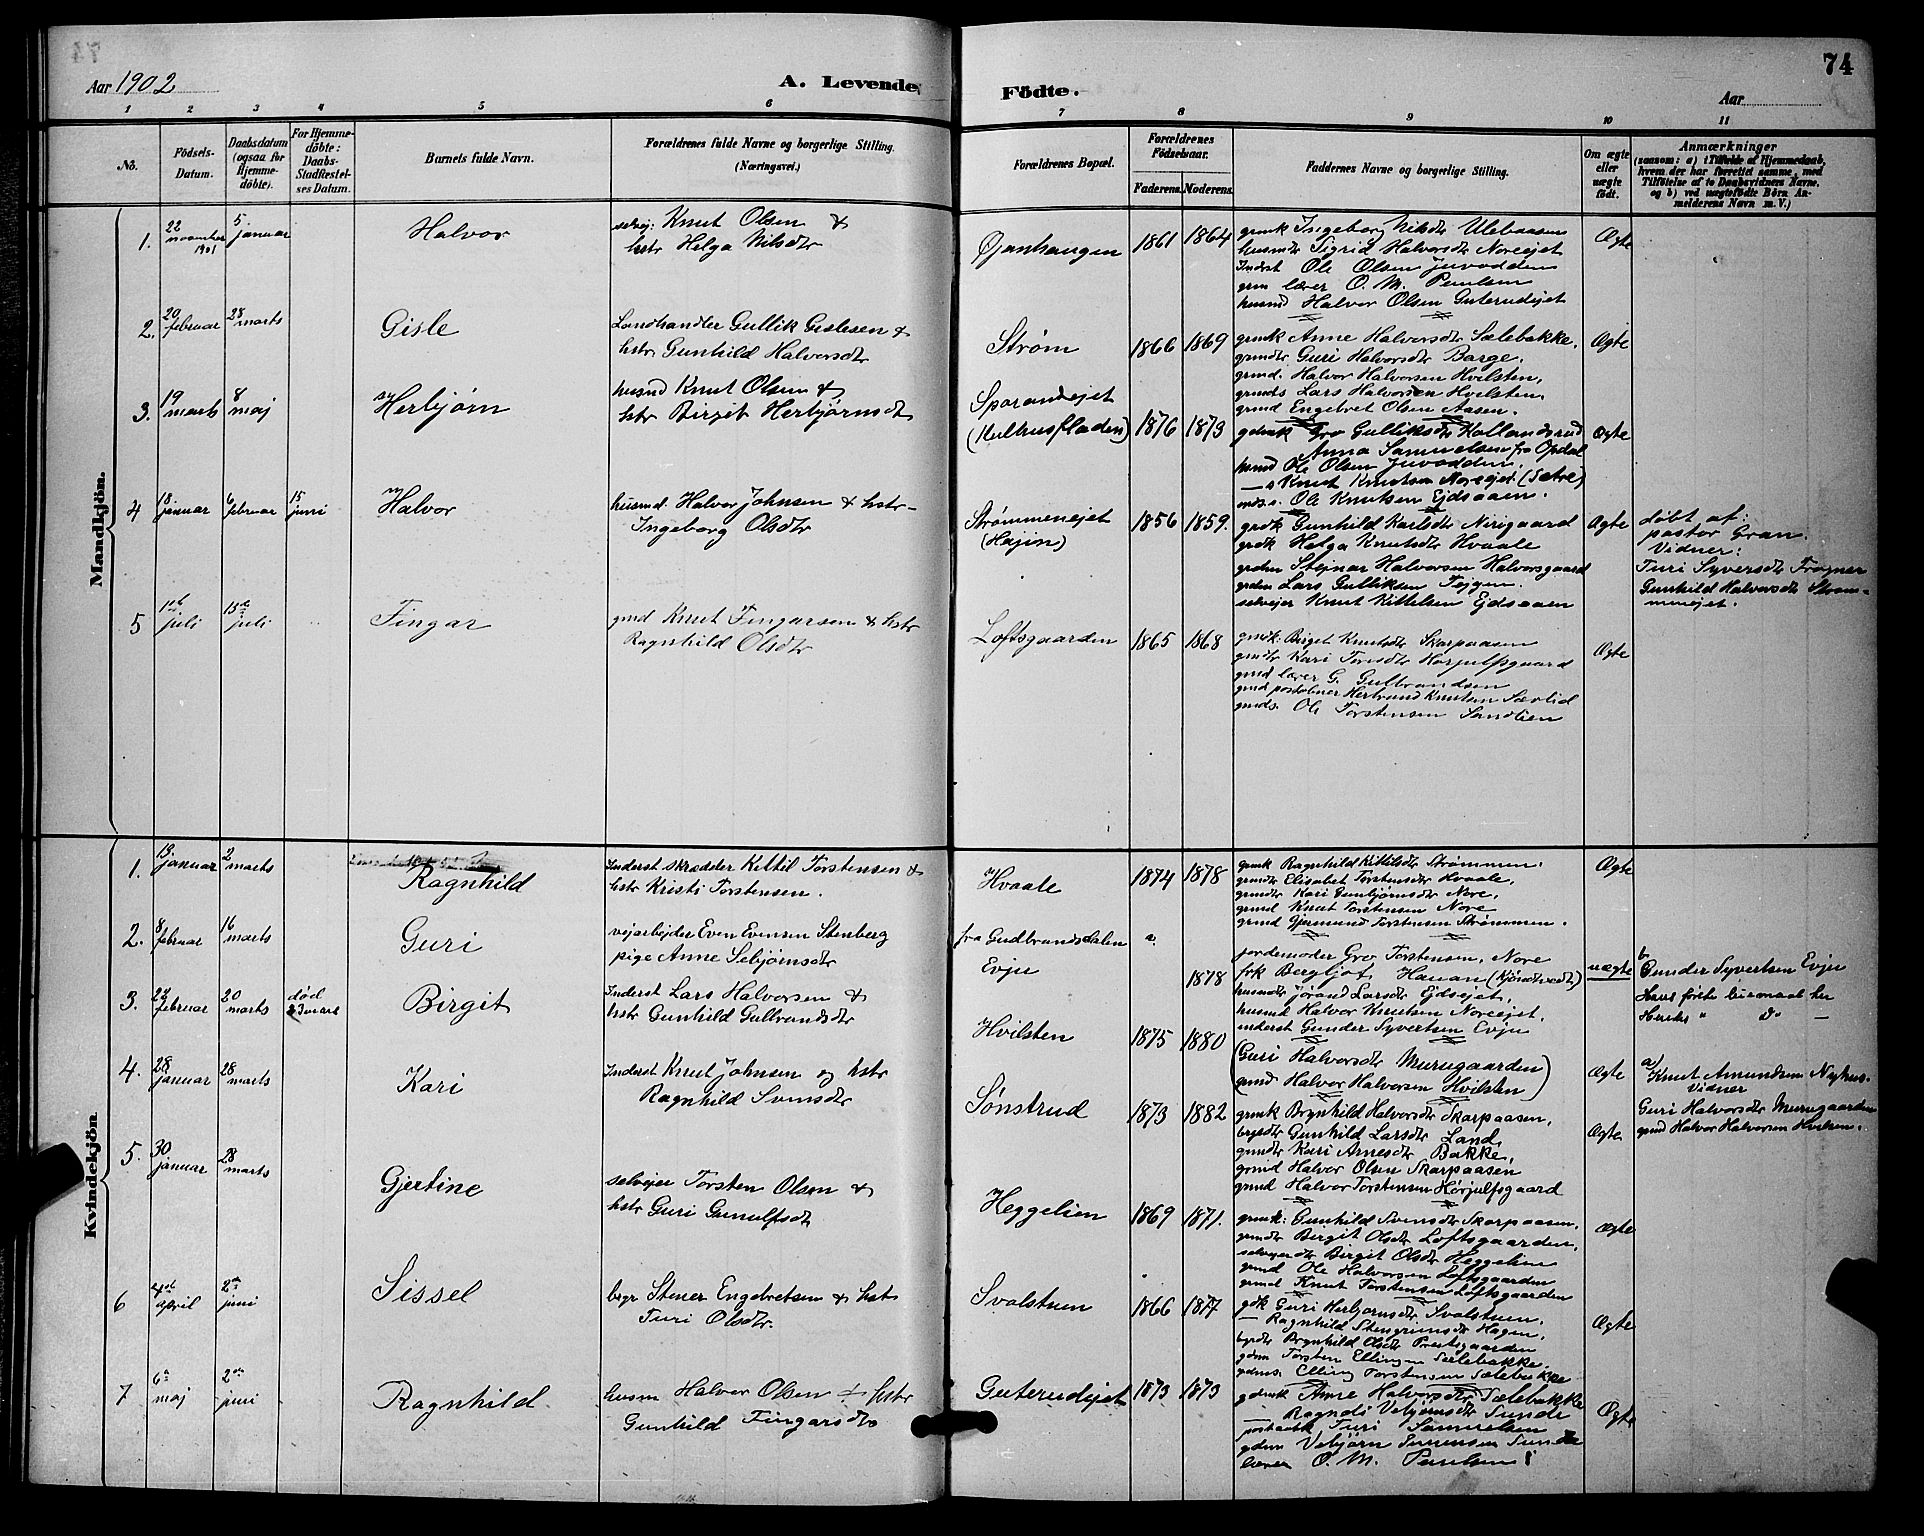 74
Aar 1902
A. Levende
Fødte.
Aar
1 2 3 4 5 6 7 8 9 10 11
No.
Fødsels-
Datum.
Daabsdatum
(ogsaa for
Hjemme-
døbte).
For Hjemme-
døbte:
Daabs-
Stadfæstel-
ses Datum.
Barnets fulde Navn.
Forældrenes fulde Navne og borgerlige Stilling.
(Næringsvei.)
Forældrenes Bopæl.
Forældrenes
Fødselsaar.
Faderens.
Moderens.
Faddernes Navne og borgerlige Stilling.
Om ægte
eller
uægte
født.
Anmærkninger
(saasom: a) i Tilfælde af Hjemmedaab,
hvem der har forrettet samme, med
Tilføielse af to Daabsvidners Navne,
og b) ved uægtefødte Børn An-
melderens Navn m. V.)
Mandkjøn.
1.
22
november
1901
5
januar
Halvor
selvej. Knut Olsen &
hstr Helga Nilsdtr
Øjanhaugen
1861
1864
gmk Ingeborg Nilsdtr Ulebaasen
husmdtr Sigrid Halvorsdtr Noreejet
Inderst Ole Olsen Juvodden
gm lærer O. M. Paulsen
husmd Halvor Olsen Guterudejet
Ægte
2.
20
februar
23
marts
Gisle
Landhandler Gullik Gislesen &
hstr. Gunhild Halvorsdtr
Strøm
1866
1869
gmk Anne Halvorsdtr Sælebakke.
gmdtr Guri Halvorsdtr Barge.
gmd. Halvor Halvorsen Hvilsten,
gmds Lars Halvorsen Hvilsten,
gmd Engebret Olsen Aasen.
Ægte
3.
19
marts
8
maj
Herbjørn
husmd Knut Olsen &
hstr Birgit Herbjørnsdtr
Sporanejet
(Kulhusfladen)
1876
1873
gdmk Gro Gulliksdtr Hallandsrud
Anna Samuelsen fra Opdal
husmd Ole Olsen Juvodden.
— s Knut Knutsen Noreejet (Sætre)
mds. Ole Knutsen Ejdsaaen.
Ægte
4
18
januar
6
februar
15
juni
Halvor
husmd. Halvor Johnsen & hstr-
Ingeborg Olsdtr
Strømmenejet
(Hajin)
1856
1859.
gmk Gunhild Karlsdtr Nirigaard
gmk Helga Knutsdtr Hvaale
gmd Steinar Halvorsen Halvorsgaard
gmd Lars Gulliksen Tejgen.
selvejer Knut Kittelsen Ejdsaaen
Ægte
døbt af
pastor Gran.
Vidner:
Turi Syversdtr Fragner
Gunhild Halvorsdtr Strøm-
menejet.
5
juli
15de
juli
Fingar
gmd Knut Fingarsen & hstr
Ragnhild Olsdtr
Loftsgaarden
1865
1868
gmk. Birget Knutsdtr Skarpaasen
gmdtr Kari Torsdtr Horjulfsgaard
gmd lærer G. Gulbrandsen
gmd postaabner Herbrand Knutsen Sævlid
gmds. Ole Torstensen Sandlien
Ægte
Kvindekjön
1.
13.
januar
2
marts
Ragnhild
Inderst skrædder Kittil Torstensen &
hstr Kristi Torstensen.
Hvaale
1874
1878
gmk Ragnhild Kittilsdtr Strømmen.
gmdtr Elisabet Torstensdtr Hvaale,
gmdtr Kari Gunbjørnsdtr Nore,
gmd Knut Torstensen Nore
gmd Gjermund Torstensen Strømmen.
Ægte
2.
8
februar
16
marts
Guri
vejarbejder Even Evensen Stenberg
pige Anne Sebjørnsdtr
fra Gudbrandsdalen
Evju
1878
jordemoder Gro Torstensen, Nore
frk Bergljot Hauan (Kjøndtvedt)
husmdtr Jørand Larsdtr Ejdsejet,
husmd Halvor Knutsen Noreejet.
inderst Gunder Syvertsen Evju
uægte
b
Gunder Syvertsen Evju
Hans første leiermaal hu
Hendes " D° —
3.
27
februar
20
marts
død
23 mars
Birgit
Inderst Lars Halvorsen &
hstr Gunhild Gulbrandsdtr
Hvilsten
1875
1880
(Guri Halvorsdtr Murugaarden
gmd Halvor Halvorsen Hvilsten)
Ægte
a/
Knut Amundsen Nyhus.
Vidner
Guri Halvorsdtr Murugaarden
gmd Halvor Halvorsen Hvilsten.
4.
28
januar
28
marts
Kari
Inderst Knut Johnsen og hstr
Ragnhild Svensdtr
Sønstrud
1873
1882
gmk Brynhild Halvorsdtr Skarpaasen,
bygdtr Gunhild Larsdtr Land,
gmdtr Kari Arnesdtr Bakke,
gmd Halvor Olsen Skarpaasen
gmd Halvor Torstensen Horjulfsgaard
Ægte
5.
30
januar
28
marts
Gjertine
selvejer Torsten Olsen &
hstr Guri Gunulfsdtr
Heggelien
1869
1871.
gmk: Gunhild Svensdtr Skarpaasen,
gmdtr Birgit Olsdtr Loftsgaarden,
selvejerdtr Birgit Olsdtr Heggelien
gmd Ole Halvorsen Loftsgaarden
gmd Knut Torstensen Loftsgaarden
Ægte
6
april
2den
juni
Sissel
bygs Stener Engebretsen & hstr
Turi Olsdtr.
Svalstuen
1866
1877
gdk Guri Herbjørnsdtr Svalstuen.
— Ragnhild Stengrimsdtr Hagen,
bygdtr Brynhild Olsdtr Prestgaarden
gdm Torsten Ellingsen Sælebakke.
gdms. Elling Torstensen Sælebakke
Ægte
7
6te
maj
2den
juni
Ragnhild
husm Halvor Olsen & hstr
Gunhild Fingarsdtr
Guterudejet
1873
1873
gdmk Anne Halvorsdtr Sælebakke
— Ragndi Vebjørnsdtr Sundi
Turi Samuelsen
gdm Vebjørn
lærer O. M. Paulsen
Ægte